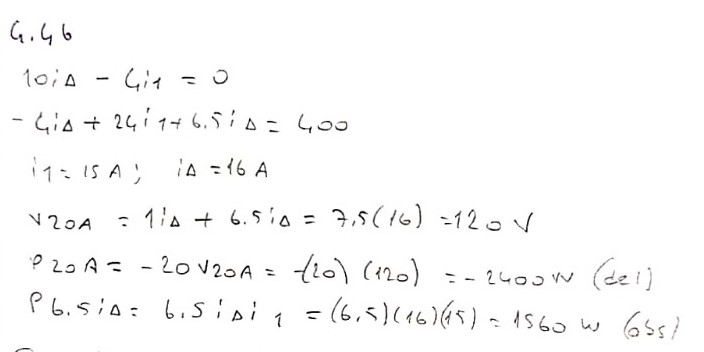 4.46
10iΔ - 4i1 = 0
- 4iΔ + 24i1 + 6.5iΔ = 400
i1 = 15 A; iΔ = 16 A
V20A = 1iΔ + 6.5iΔ = 7,5(16) = 120 V
P20A = - 20V20A = -(20) (120) = - 2400 W (del)
P6.5iΔ = 6.5iΔi1 = (6,5)(16)(15) = 1560 W (abs)